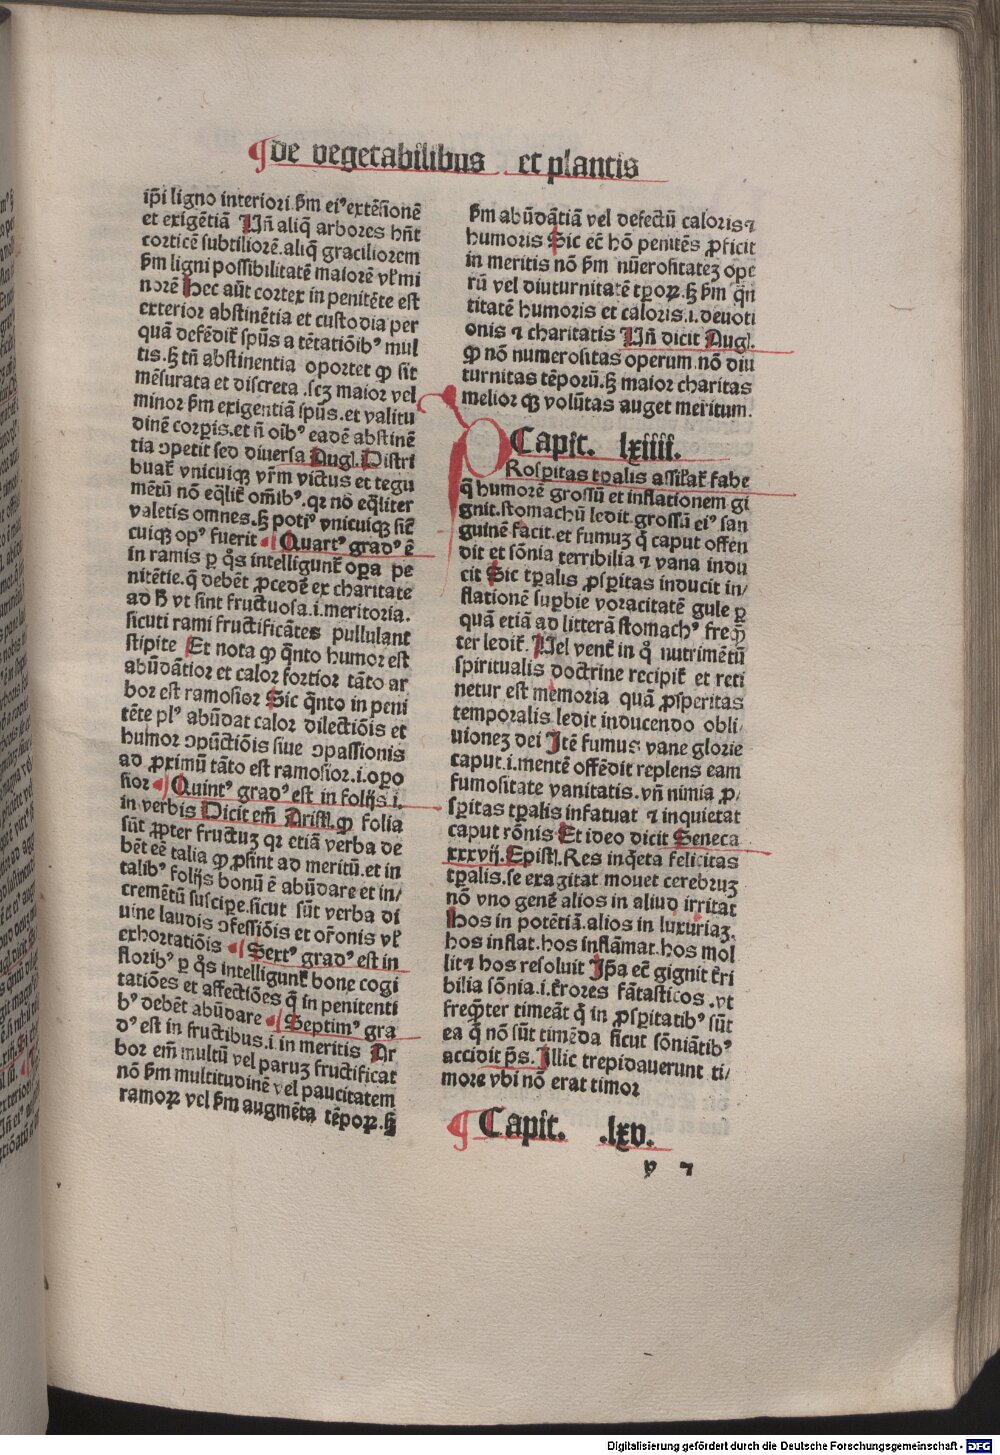 ¶de vegetabilibus et plantis
ip̄i ligno interiori ẜm ei⁹ extēsionē
et exigētiā Uñ aliq̄ arbores hn̄t
corticē subtiliorē.aliq̄ graciliorem
ẜm ligni possibilitatē maiorē vl̓ mi
norē Hec aūt cortex in penitēte est
exterior abstinētia et custodia per
quā defēdit̄ spūs a tētatiōib⁹ mul
tis.ꝫ tn̄ abstinentia oportet ꝙ sit
mēsurata et discreta.scꝫ maior vel
minor ẜm exigentiā spūs.et valitu
dinē corꝑis.et n̄ oīb⁹ eadē abstinē
tia ↄpetit sed diuersa Augꝉ. Distri
buat̄ vnicuiqꝫ vr̄m victus et tegu
mētū nō eq̄lit̄ om̄ib⁹.qꝛ nō eq̄liter
valetis omnes.ꝫ poti⁹ vnicuiqꝫ sic̄
cuiqꝫ op⁹ fuerit ¶Quart⁹ grad⁹ ē
in ramis ꝑ q̊s intelligunt̄ oꝑa pe
nitētie.q̄ debēt ꝓcedē ex charitate
ad ħ vt sint fructuosa.i.meritoria.
sicuti rami fructificātes pullulant
stipite Et nota ꝙ q̄nto humor est
abūdātior et calor fortior tāto ar
bor est ramosior Sic q̄nto in peni
tēte pl⁹ abūdat calor dilectiōis et
humor ↄpūctiōis siue ↄpassionis
ad ꝓximū tāto est ramosior.i.oꝑo
sior ¶Quint⁹ grad⁹ est in folijs.i.
in verbis Dicit em̄ Aristꝉ.ꝙ folia
sūt ꝓpter fructuꝫ qꝛ etiā verba de
bēt eē talia ꝙ ꝓsint ad meritū.et in
talib⁹ folijs bonū ē abūdare et in/
cremētū suscipe.sicut sūt verba di
uine laudis ↄfessiōis et or̄onis vl̓
exhortatiōis ¶Sext⁹ grad⁹ est in
florib⁹ ꝑ q̊s intelligunt̄ bone cogi
tatiōes et affectiōes q̄ in penitenti
b⁹ debēt abūdare ¶Septim⁹ gra
d⁹ est in fructibus.i.in meritis Ar
bor em̄ multū vel paruꝫ fructificat
nō ẜm multitudinē vel paucitatem
ramoꝝ vel ẜm augmēta tēpoꝝ.ꝫ
ẜm abūdātiā vel defectū caloris ⁊
humoris Sic eē hō penitēs ꝓficit
in meritis nō ẜm nūerositateꝫ ope
rū vel diuturnitatē tp̄oꝝ.ꝫ ẜm q̄n
titatē humoris et caloris.i.deuoti
onis ⁊ charitatis Uñ dicit Augꝉ.
ꝙ nō numerositas operum.nō diu
turnitas tēporū.ꝫ maior charitas
melior qꝫ volūtas auget meritum.
Capit. lxiiii.
PRosꝑitas tꝑalis assil̓at̄ fabe
q̄ humorē grossū et inflationem gi
gnit.stomachū ledit.grossū ei⁹ san
guinē facit.et fumuꝫ q̄ caput offen
dit et sōnia terribilia ⁊ vana indu
cit Sic tꝑalis ꝓsꝑitas inducit in/
flationē suꝑbie voracitatē gule ꝑ
quā etiā ad litterā stomach⁹ freq̄
ter ledit̄. Uel vent̄ in q̊ nutrimētū
spiritualis doctrine recipit̄ et reti
netur est memoria quā ꝓsperitas
temporalis ledit inducendo obli/
uionez dei Itē fumus vane glorie
caput.i.mentē offēdit replens eam
fumositate vanitatis.vn̄ nimia ꝓ/
sꝑitas tꝑalis infatuat ⁊ inquietat
caput rōnis Et ideo dicit Seneca
xxxvij.Epistꝉ.Res inq̄eta felicitas
tꝑalis.se exagitat mouet cerebruꝫ
nō vno genē alios in aliud irritat
Hos in potētiā.alios in luxuriaꝫ.
hos inflat.hos inflāmat.hos mol
lit ⁊ hos resoluit Ip̄a eē gignit t̄ri
bilia sōnia.i.t̄rores fātasticos.vt
freq̄ter timeāt q̄ in ꝓsꝑitatib⁹ sūt
ea q̄ nō sūt timēda sicut sōniātib⁹
accidit ps̄. Illic trepidauerunt ti/
more vbi nō erat timor
¶Capit. .lxv.
v ⁊
Digitalisierung gefördert durch die Deutsche Forschungsgemeinschaft - DFG